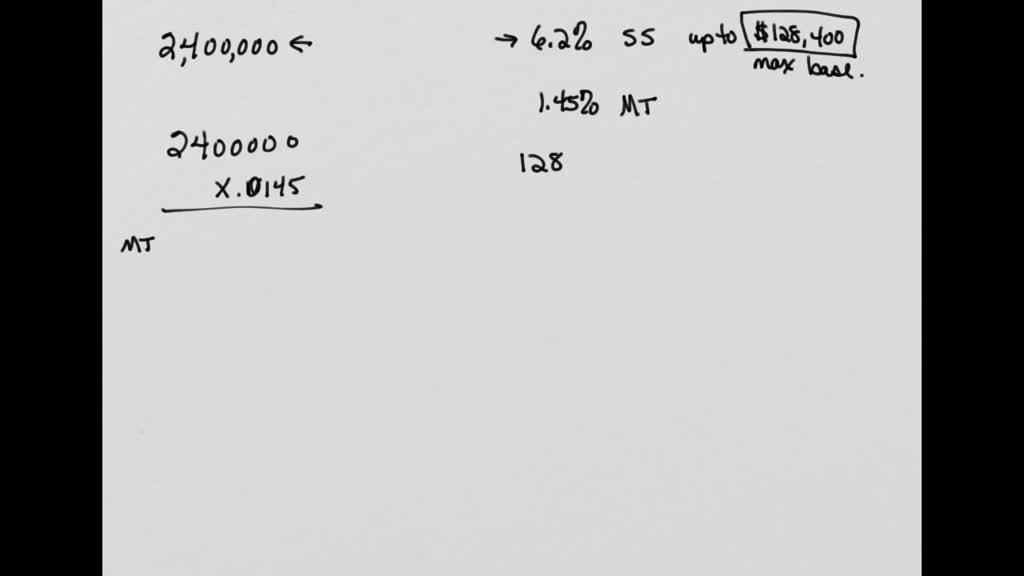 2,400,000 ←
2400000
x.0145
MT
→ 6.2% SS up to $128,400
max base.
1.45% MT
128